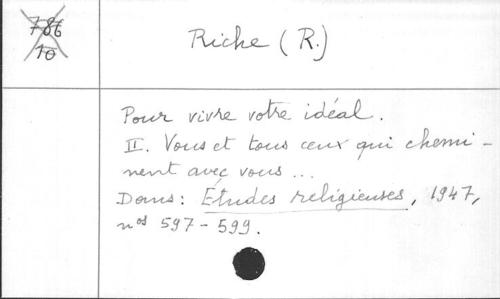 786
10
Riche (R.)
Pour vivre votre idéal.
II. Vous et tous ceux qui chemi-
nent avec vous ...
Dans: Études religieuses, 1947,
nos 597-599.